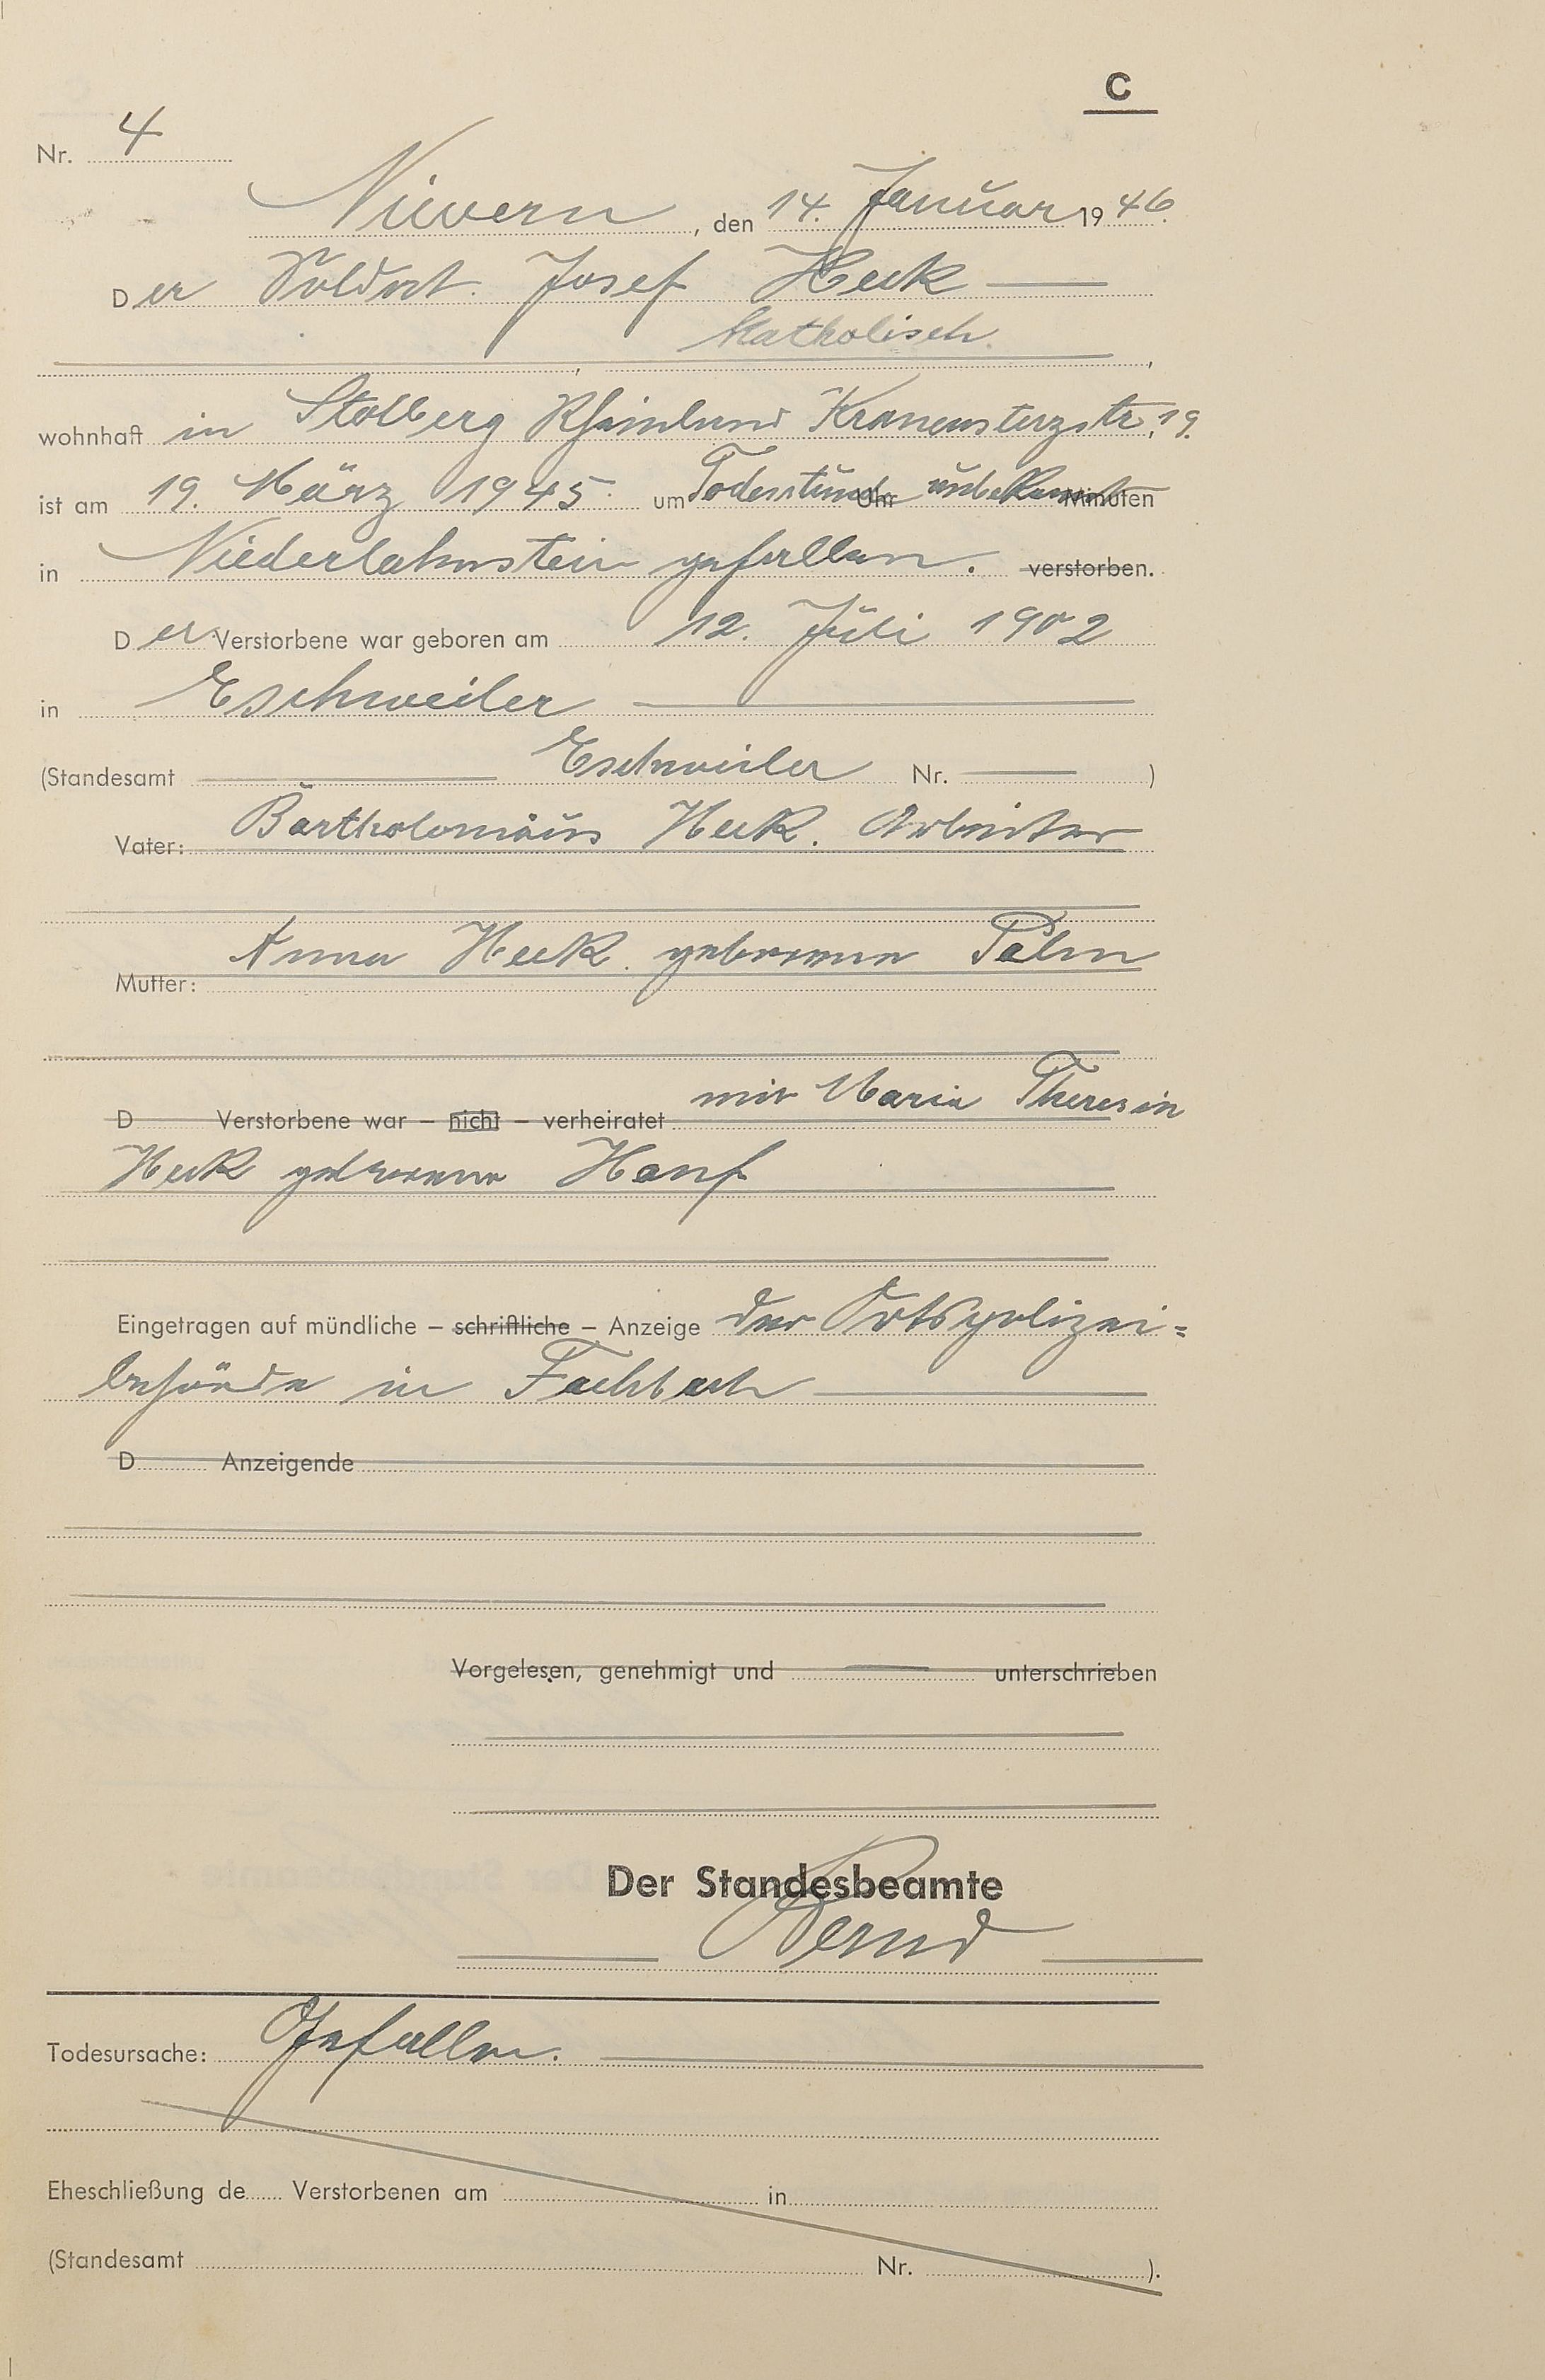 C
Nr. 4
Nievern, den 14. Januar 1946.
Der Soldat Josef Heck
Katholisch.
wohnhaft in Stolberg Rheinland Kranensterzstr. 19.
ist am 19. März 1945 um Todesstunde Uhr unbekannt Minuten
in Niederlahnstein gefallen. verstorben.
Der Verstorbene war geboren am 12. Juli 1902
in Eschweiler
(Standesamt Eschweiler Nr. )
Vater: Bartholomäus Heck. Arbeiter
Mutter: Anna Heck geborene Palm
D Verstorbene war – nicht – verheiratet mit Maria Theresia
Heck geborene Hanf
Eingetragen auf mündliche – schriftliche – Anzeige der Ortspolizei=
behörde in Fachbach
D Anzeigende
Vorgelesen, genehmigt und unterschrieben
Der Standesbeamte
Todesursache: Gefallen.
Eheschließung de Verstorbenen am in
(Standesamt Nr. ).